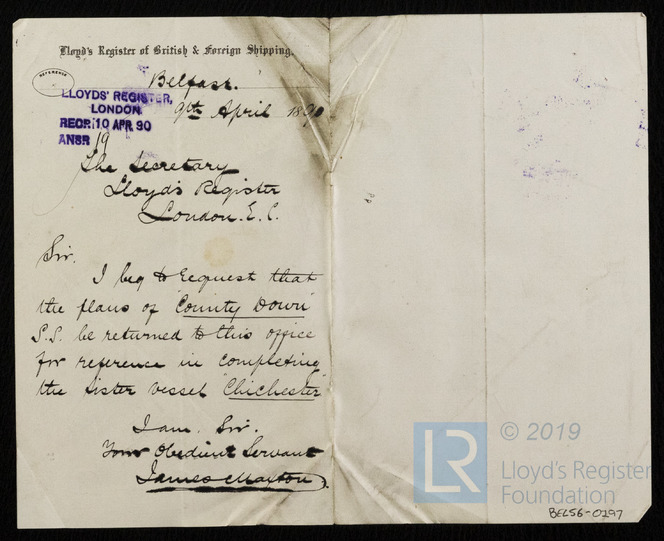 Lloyd's Register of British & Foreign Shipping.
REFERENCE
Belfast.
9th April 1890
LLOYDS' REGISTER,
LONDON
RECD 10 APR. 90
ANSR 19
The Secretary
Lloyd's Register
London. E. C.
Sir.
I beg to request that
the plans of "County Down"
S.S. be returned to this office
for reference in completing
the sister vessel "Chichester"
I am, Sir.
Your Obedient Servant
James Maxton.
LR
© 2019
Lloyd's Register
Foundation
BEL56-0297